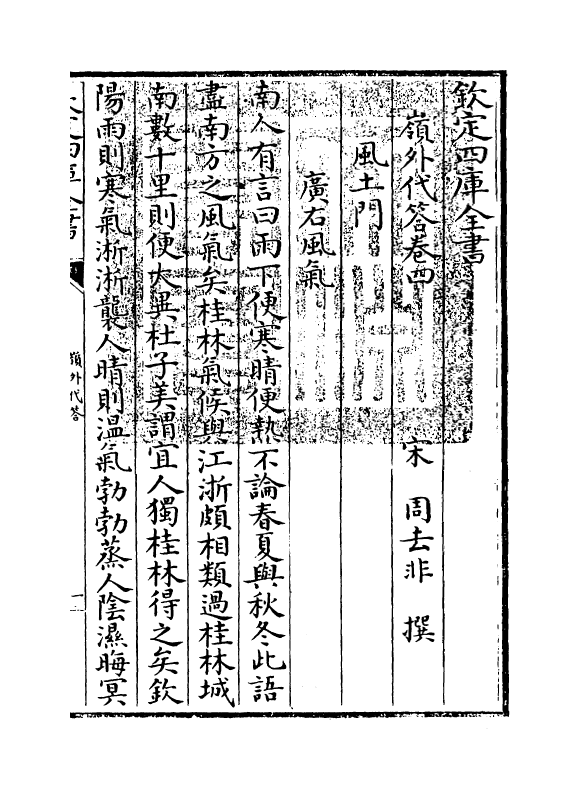 欽定四庫全書
嶺外代答卷四
宋 周去非 撰
風土門
廣右風氣
南人有言曰雨下便寒晴便熱不論春夏與秋冬此語
盡南方之風氣矣桂林氣候與江浙頗相類過桂林城
南數十里則便大異杜子美謂宜人獨桂林得之矣欽
陽雨則寒氣淅淅襲人晴則温氣勃勃蒸人陰濕晦冥
嶺外代答
一